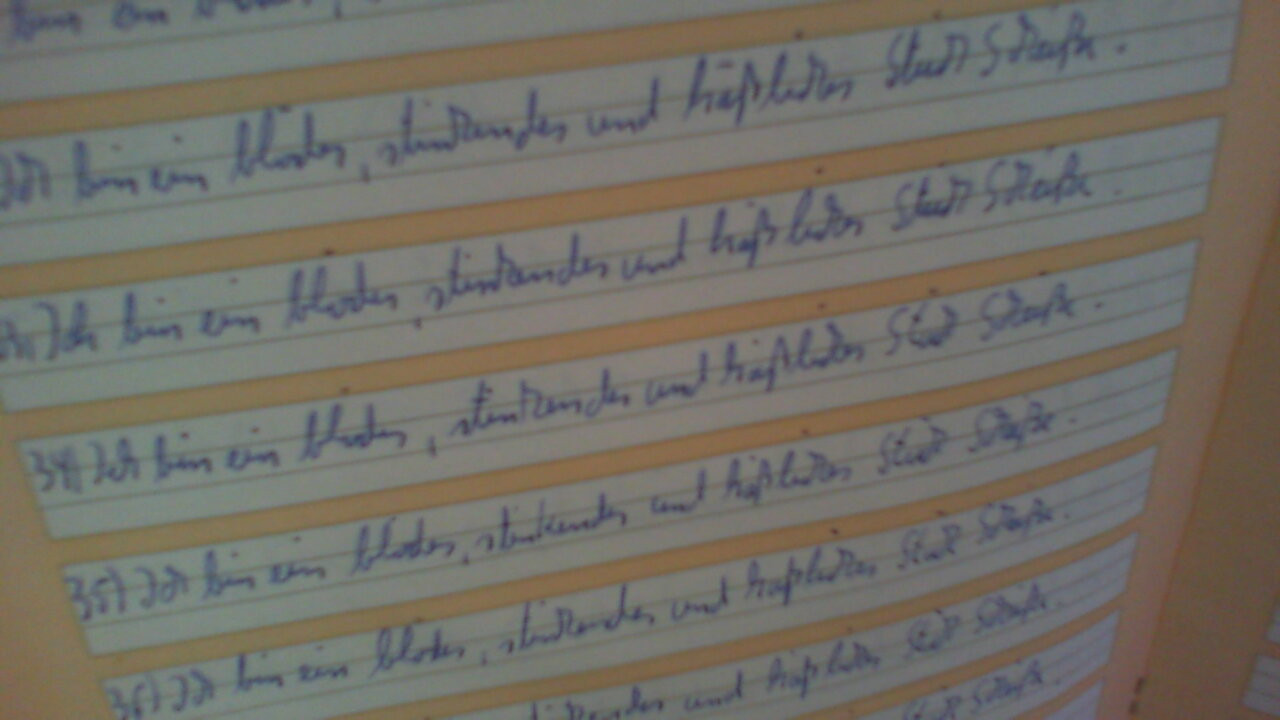 bin ein
Ich bin ein blödes, stinkendes und häßliches Stück Scheiße.
Ich bin ein blödes, stinkendes und häßliches Stück Scheiße.
34) Ich bin ein blödes, stinkendes und häßliches Stück Scheiße.
35) Ich bin ein blödes, stinkendes und häßliches Stück Scheiße.
36) Ich bin ein blödes, stinkendes und häßliches Stück Scheiße.
stinkendes und häßliches Stück Scheiße.
Stück Scheiße.